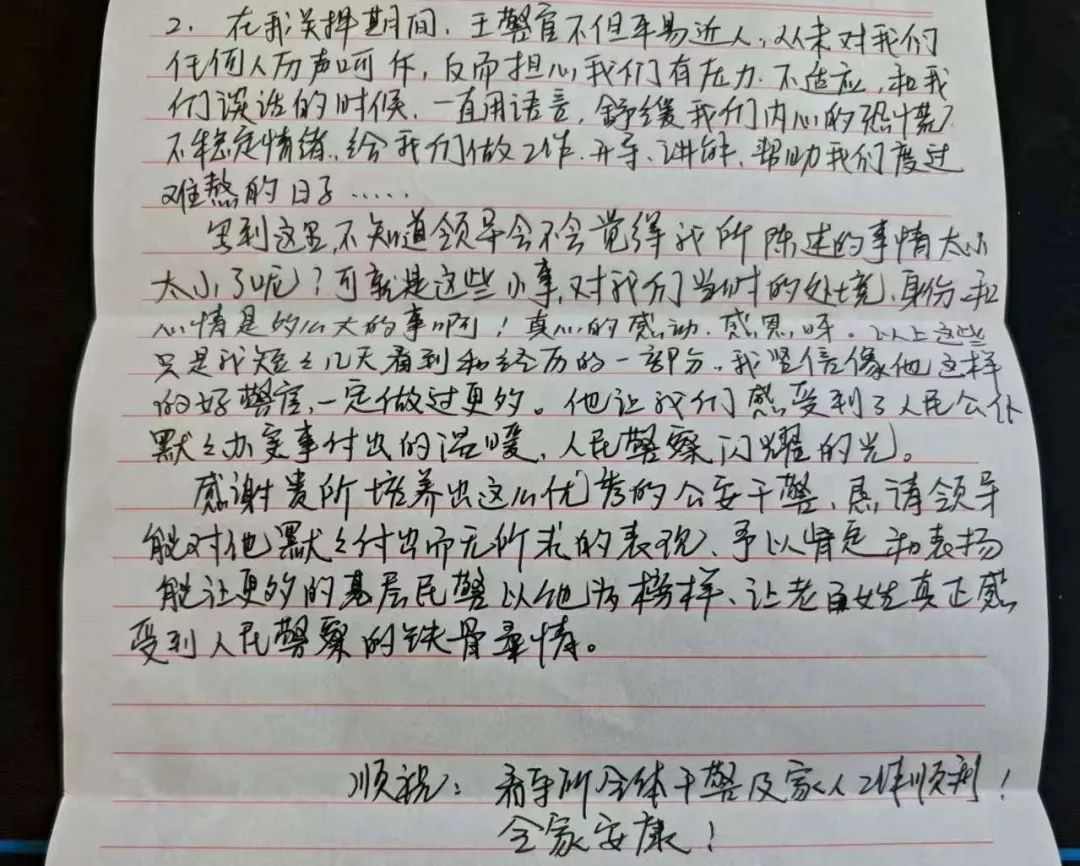 2. 在我关押期间，王警官不但平易近人，从未对我们
任何人厉声呵斥，反而担心我们有压力.不适应，和我
们谈话的时候.一直用语言，舒缓我们内心的恐慌
不稳定情绪.给我们做工作.开导、讲解，帮助我们度过
难熬的日子……
写到这里，不知道领导会不会觉得我所陈述的事情太小
太小了呢？可就是这些小事，对我们当时的处境、身份和
心情是多么大的事啊！真心的感动.感恩呀。以上这些
只是我短短几天看到和经历的一部分。我坚信像他这样
的好警官，一定做过更多。他让我们感受到了人民公仆
默默办实事付出的温暖，人民警察闪耀的光。
感谢贵所培养出这么优秀的公安干警、恳请领导
能对他默默付出而无所求的表现、予以肯定和表扬
能让更多的基层民警以他为榜样、让老百姓真正感
受到人民警察的铁骨柔情。
顺祝：看守所全体干警及家人工作顺利！
全家安康！